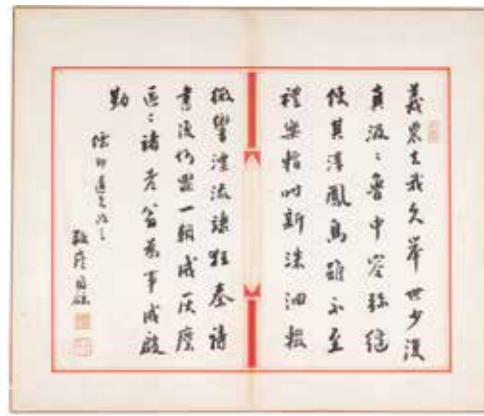 羲農去我久舉世少復
真汲〻魯中叟弥縫
使其淳鳳鳥雖不至
禮樂暫时新洙泗輟
微響漂流逮狂秦詩
書復何罪一朝成灰塵
區〻諸老翁為事誠殷
勤